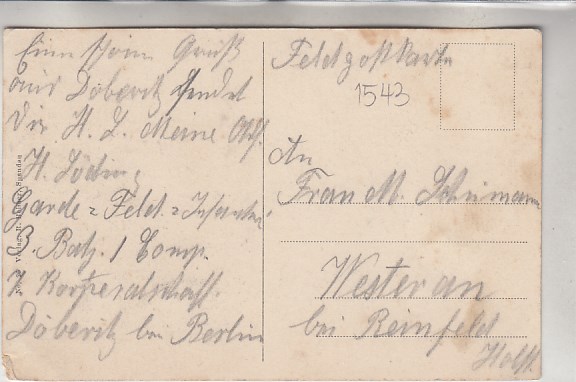 Einen schönen Gruß
aus Döberitz sendet
Dir H. L. Meine Adr.
H. Jöding
Garde = Feld = Infanterie
3. Batl. 1 Comp.
7. Korperalschaft.
Döberitz bei Berlin
Verlag Spandau
Feldpostkarte
1543
An
Frau M. Schümann
Westerau
bei Reinfeld
Holst.